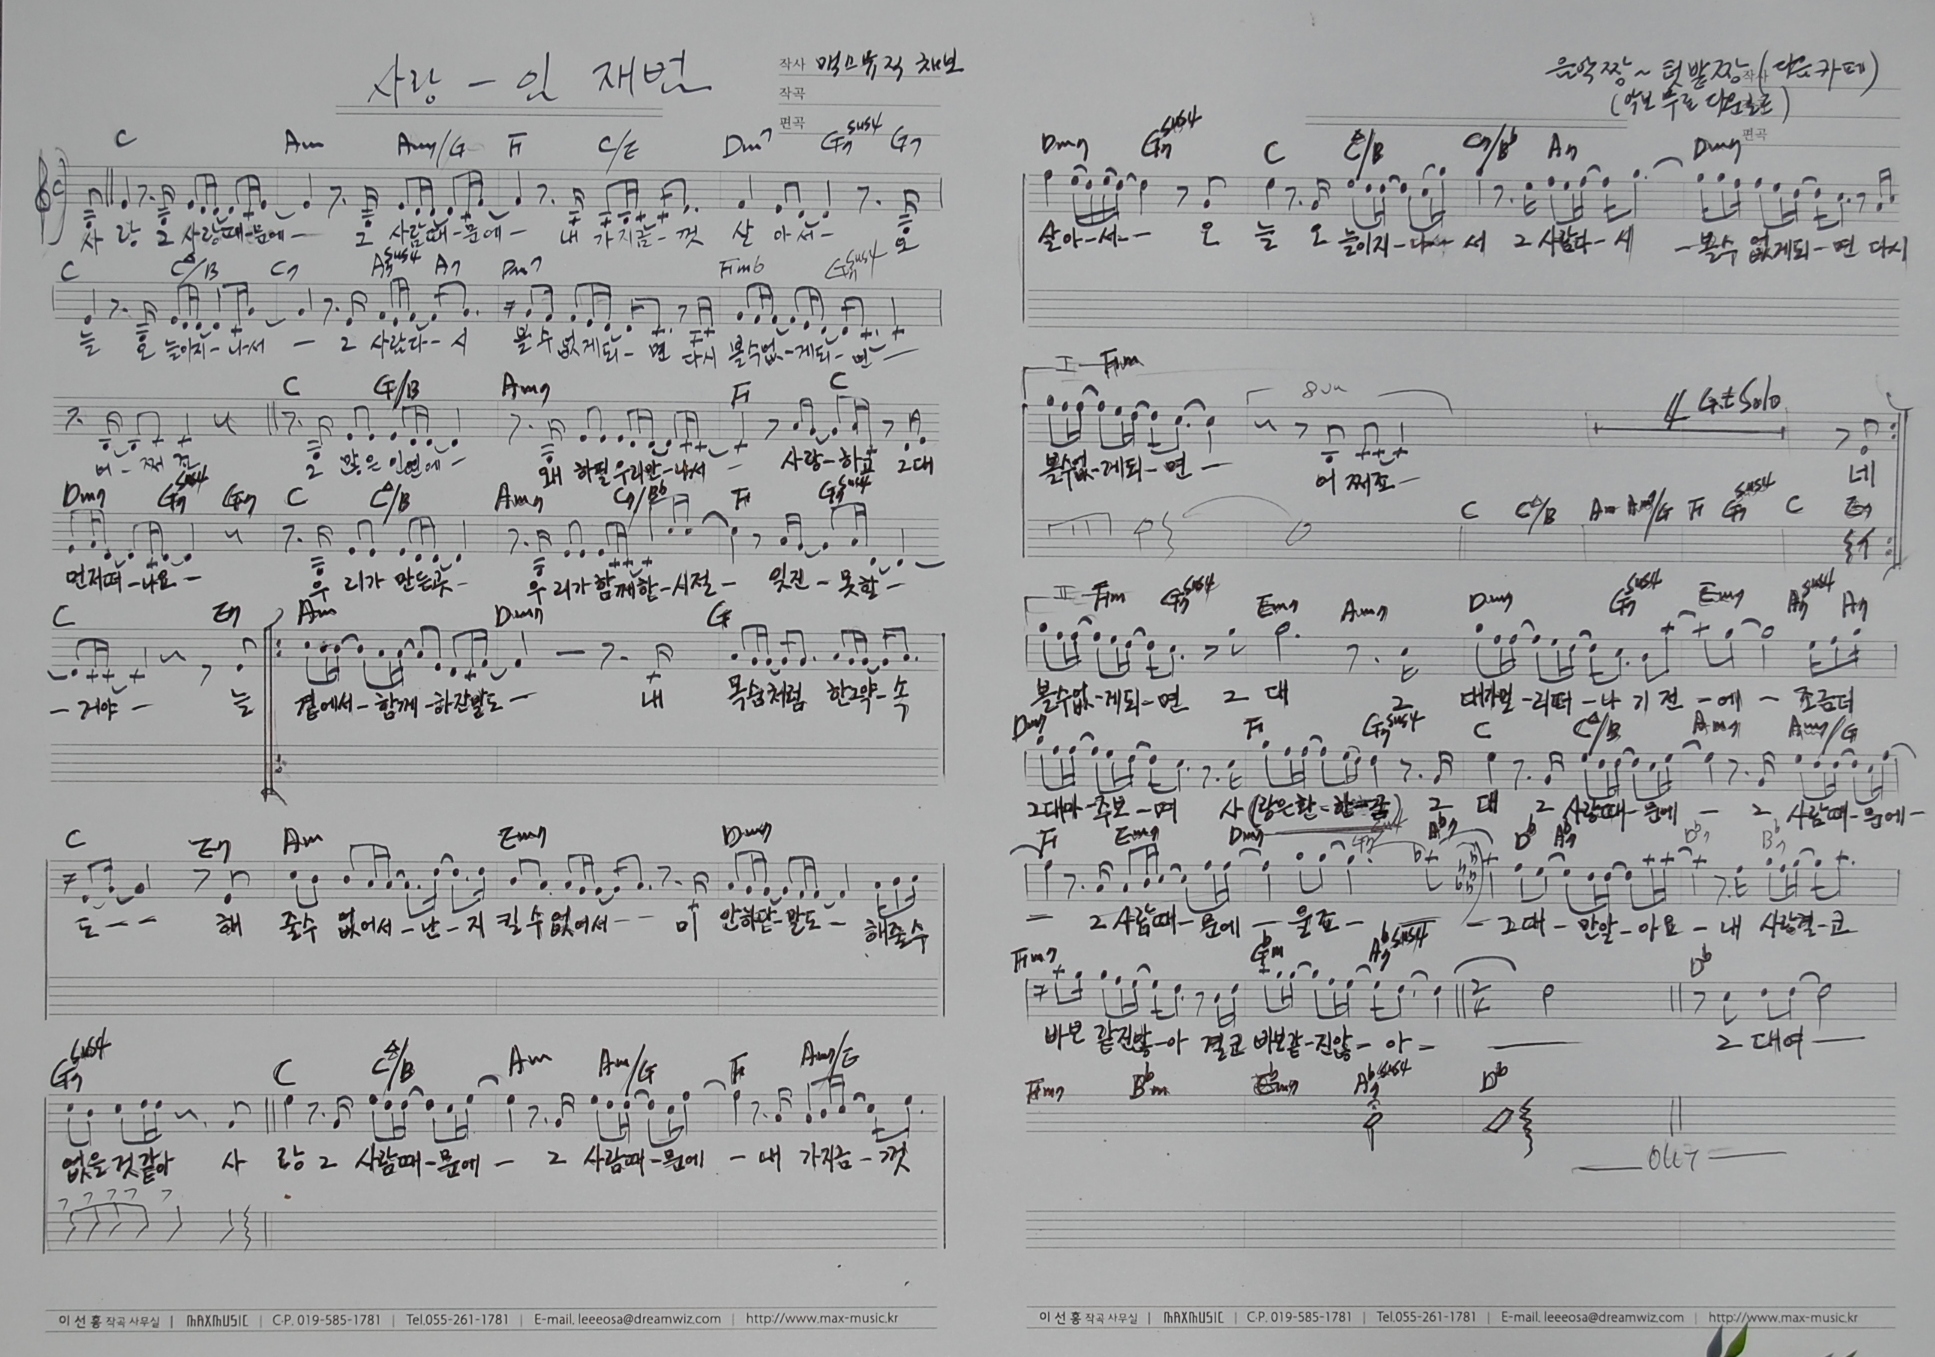 사랑 - 인 재번
작사 맥스뮤직 채보
작곡
편곡
C Am Am7/G F C/E Dm7 G7sus4 G7
사 랑 그 사람때-문에- 그 사람때-문에- 내 가지금-껏 살 아서- 오
C C△/B C7 A7sus4 A7 Dm7 Fm6 G7sus4
늘 오 늘이지-나서 - 그 사람다-시 볼수 없게되-면 다시 볼수없-게되-면-
C G/B Am7 F C
어-쩌죠 그 많은 인연에- 왜 하필 우리만-나서 - 사랑-하고 그대
Dm7 G7sus4 G7 C C△/B Am7 C7/Bb F G7sus4
먼저떠-나요- 우 리가 만든곳- 우 리가함께한-시절- 잊진-못할-
C E7 Am Dm7 G
-거야- 늘 곁에서-함께-하잔말도- 내 목숨처럼 한그약-속
C E7 Am Em7 Dm7
도-- 해 줄수 없어서-난-지 킬수없어서-- 미 안하단-말도- 해줄수
G7sus4 C C△/B Am Am/G F Am7/E
없을것같아 사 랑그 사람때-문에- 그 사람때-문에 -내 가지금-껏
이선홍 작곡사무실 | MAXMUSIC | C·P. 019-585-1781 | Tel.055-261-1781 | E-mail. leeeosa@dreamwiz.com | http://www.max-music.kr
음악짱~텃밭짱 (다음카페)
(악보 무료 다운로드)
작사
편곡
Dm7 G7sus4 C C△/B C7/Bb A7 Dm7
살아-서-- 오 늘 오 늘이지-나서 그 사람다-시 -볼수 없게되-면 다시
I Fm 8va 4 Gt Solo
볼수없-게되-면- 어쩌죠- 네
C C△/B Am Am7/G F G7sus4 C E7
II Fm G7sus4 Em7 Am7 Dm7 G7sus4 Em7 A7sus4 A7
볼수없-게되-면 그 대 그 대가멀-리떠-나 기 전-에- 조금더
Dm7 F G7sus4 C C△/B Am7 Am7/G
그대마-주보-며 사(랑은한-함 ) 그 대 그 사람때-문에 - 그 사람때-문에-
F Em7 Dm7 Ab7 Db Ab7 Db7 Bb7
- 그 사람때-문에-울죠- -그대-만알-아요-내 사랑결-코
Fm7 Gbm Ab7sus4 Db
바보 같진않-아 결코 바보같-진않-아- 그대여-
Fm7 Bbm Ebm7 Ab7sus4 Db
이선홍 작곡사무실 | MAXMUSIC | C·P. 019-585-1781 | Tel.055-261-1781 | E-mail. leeeosa@dreamwiz.com | http://www.max-music.kr